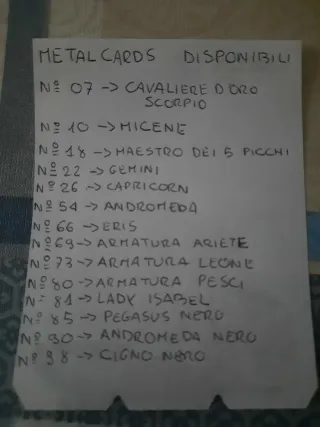 METALCARDS DISPONIBILI
Nº 07 -> CAVALIERE D'ORO
SCORPIO
Nº 10 -> MICENE
Nº 18 -> MAESTRO DEI 5 PICCHI
Nº 22 -> GEMINI
Nº 26 -> CAPRICORN
Nº 54 -> ANDROMEDA
Nº 66 -> ERIS
Nº 69 -> ARMATURA ARIETE
Nº 73 -> ARMATURA LEONE
Nº 80 -> ARMATURA PESCI
Nº 81 -> LADY ISABEL
Nº 85 -> PEGASUS NERO
Nº 90 -> ANDROMEDA NERO
Nº 98 -> CIGNO NERO